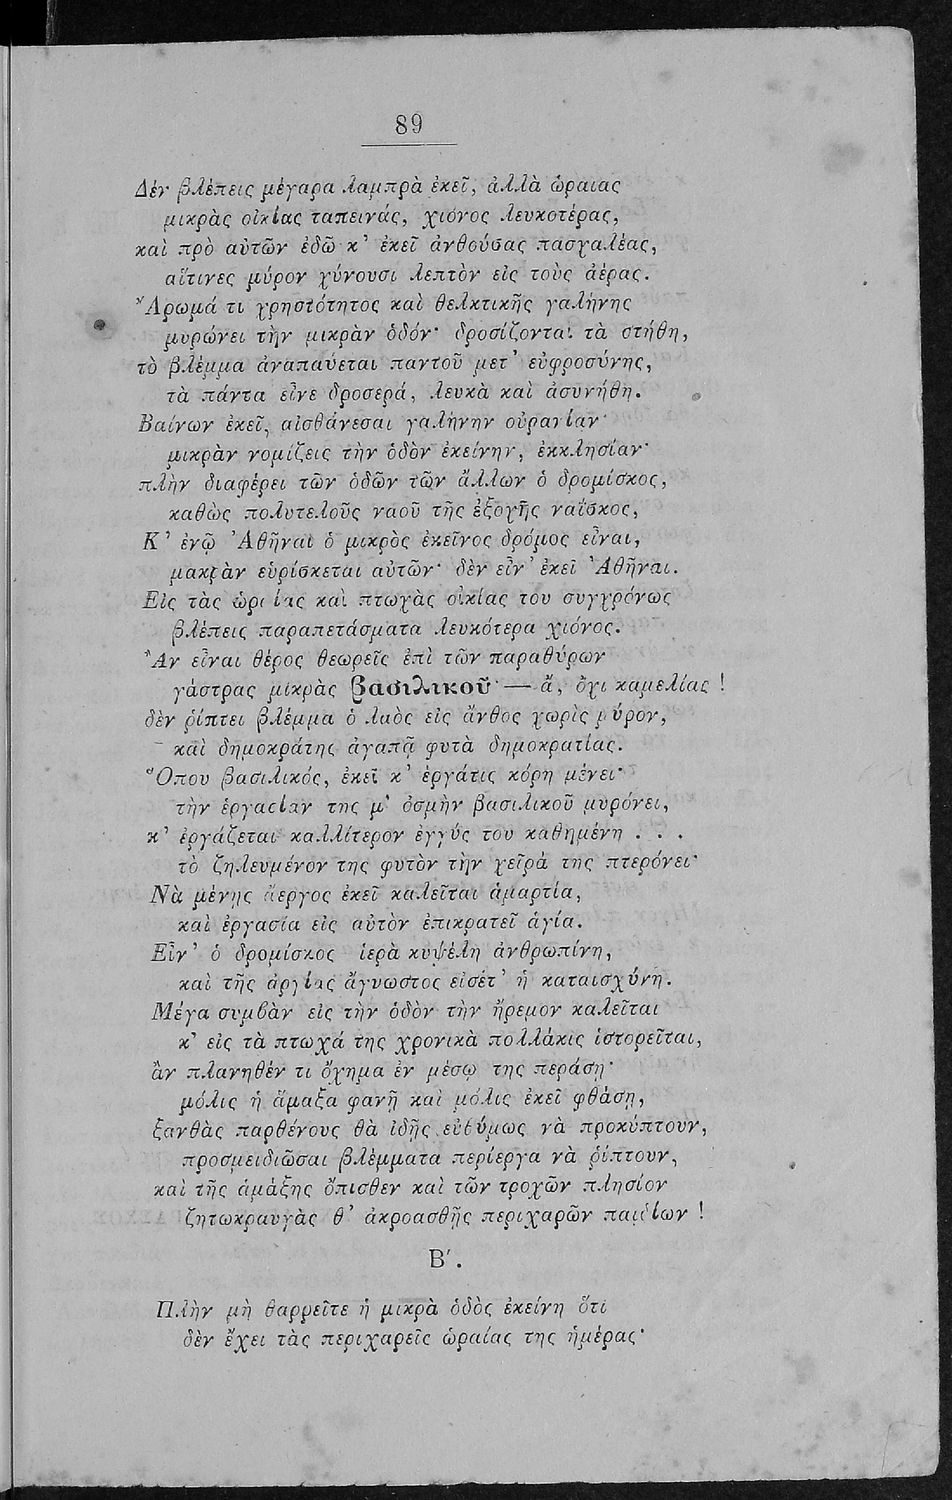 89
Δὲν βλέπεις μέγαρα λαμπρὰ ἐκεῖ, ἀλλὰ ὡραίας
μικρὰς οἰκίας ταπεινάς, χιόνος λευκοτέρας,
καὶ πρὸ αὐτῶν ἐδῶ κ’ ἐκεῖ ἀνθούσας πασχαλέας,
αἵτινες μύρον χύνουσι λεπτὸν εἰς τοὺς ἀέρας.
Ἄρωμά τι χρηστότητος καὶ θελκτικῆς γαλήνης
μυρώνει τὴν μικρὰν ὁδόν· δροσίζονται τὰ στήθη,
τὸ βλέμμα ἀναπαύεται παντοῦ μετ’ εὐφροσύνης,
τὰ πάντα εἶνε δροσερά, λευκὰ καὶ ἀσυνήθη.
Βαίνων ἐκεῖ, αἰσθάνεσαι γαλήνην οὐρανίαν·
μικρὰν νομίζεις τὴν ὁδὸν ἐκείνην, ἐκκλησίαν·
πλὴν διαφέρει τῶν ὁδῶν τῶν ἄλλων ὁ δρομίσκος,
καθὼς πολυτελοῦς ναοῦ τῆς ἐξοχῆς ναΐσκος,
Κ’ ἐνῷ Ἀθῆναι ὁ μικρὸς ἐκεῖνος δρόμος εἶναι,
μακρὰν εὑρίσκεται αὐτῶν· δὲν εἶν’ ἐκεῖ Ἀθῆναι.
Εἰς τὰς ὡραίας καὶ πτωχὰς οἰκίας του συγχρόνως
βλέπεις παραπετάσματα λευκότερα χιόνος.
Ἂν εἶναι θέρος θεωρεῖς ἐπὶ τῶν παραθύρων
γάστρας μικρὰς βασιλικοῦ· — ἄ, ὄχι καμελίας !
δὲν ῥίπτει βλέμμα ὁ λαὸς εἰς ἄνθος χωρὶς μύρον,
καὶ δημοκράτης ἀγαπᾷ φυτὰ δημοκρατίας.
Ὅπου βασιλικός, ἐκεῖ κ’ ἐργάτις κόρη μένει·
τὴν ἐργασίαν της μ’ ὀσμὴν βασιλικοῦ μυρόνει,
κ’ ἐργάζεται καλλίτερον ἐγγύς του καθημένη . . .
τὸ ζηλευμένον της φυτὸν τὴν χεῖρά της πτερόνει·
Νὰ μένῃς ἄεργος ἐκεῖ καλεῖται ἁμαρτία,
καὶ ἐργασία εἰς αὐτὸν ἐπικρατεῖ ἁγία.
Εἶν’ ὁ δρομίσκος ἱερὰ κυψέλη ἀνθρωπίνη,
καὶ τῆς ἀργίας ἄγνωστος εἰσέτ’ ἡ καταισχύνη.
Μέγα συμβὰν εἰς τὴν ὁδὸν τὴν ἤρεμον καλεῖται
κ’ εἰς τὰ πτωχά της χρονικὰ πολλάκις ἱστορεῖται,
ἂν πλανηθέν τι ὄχημα ἐν μέσῳ της περάσῃ·
μόλις ἡ ἅμαξα φανῇ καὶ μόλις ἐκεῖ φθάσῃ,
ξανθὰς παρθένους θὰ ἰδῇς εὐθύμως νὰ προκύπτουν,
προσμειδιῶσαι βλέμματα περίεργα νὰ ῥίπτουν,
καὶ τῆς ἁμάξης ὄπισθεν καὶ τῶν τροχῶν πλησίον
ζητωκραυγὰς θ’ ἀκροασθῇς περιχαρῶν παιδίων !
Β′.
Πλὴν μὴ θαρρεῖτε ἡ μικρὰ ὁδὸς ἐκείνη ὅτι
δὲν ἔχει τὰς περιχαρεῖς ὡραίας της ἡμέρας·